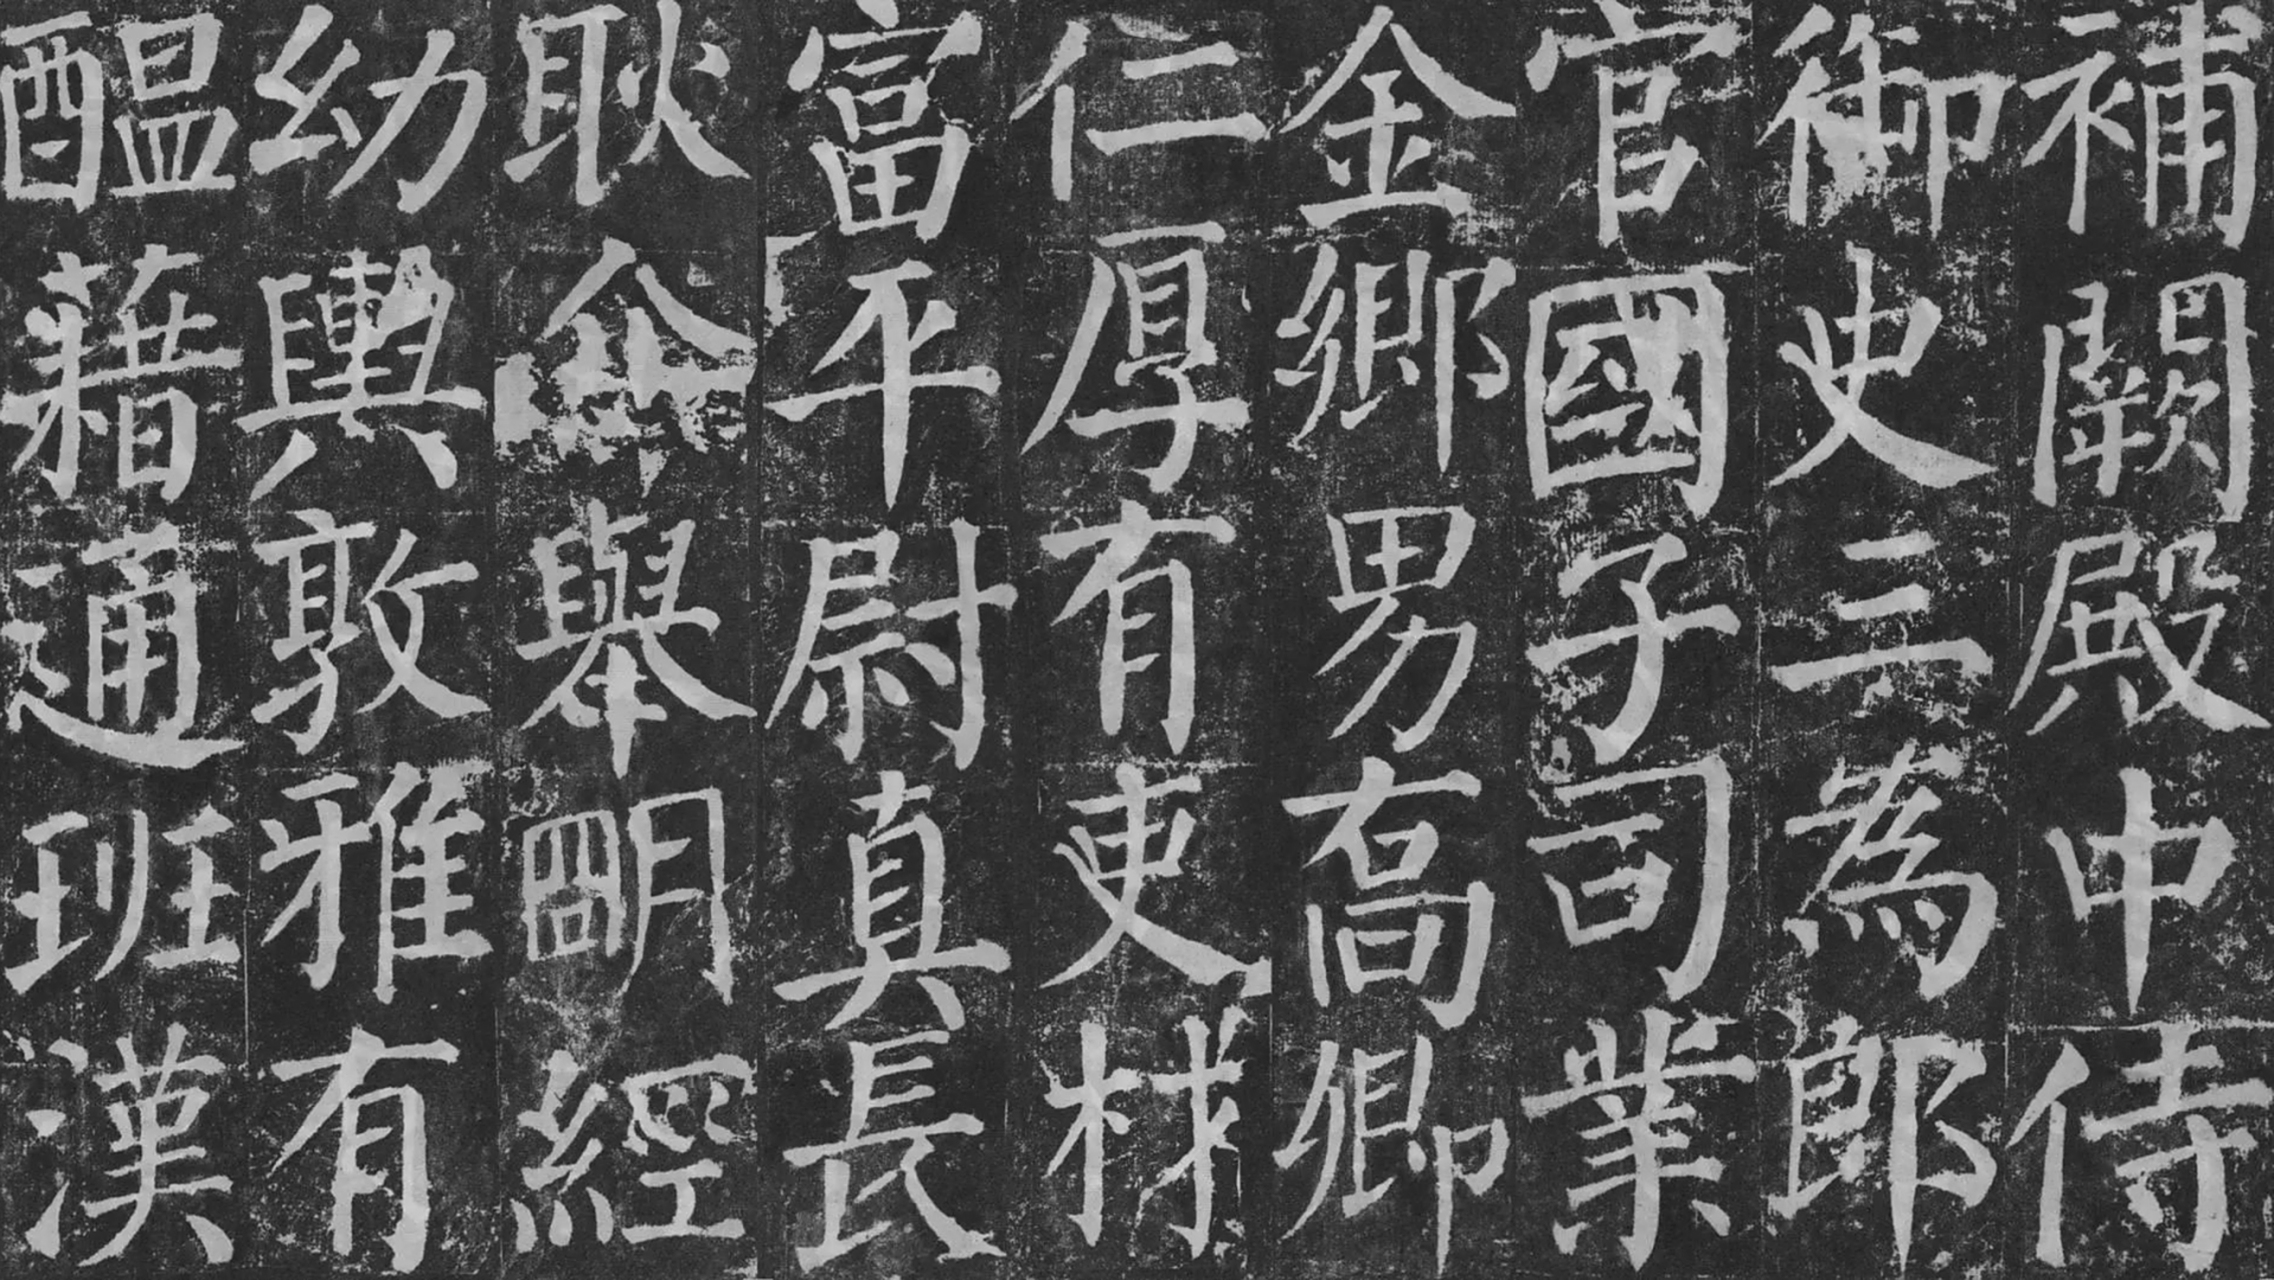 補闕殿中侍
御史三為郎
官國子司業
金鄉男喬卿
仁厚有吏材
富平尉真長
耿介舉明經
幼輿敦雅有
醞藉通班漢